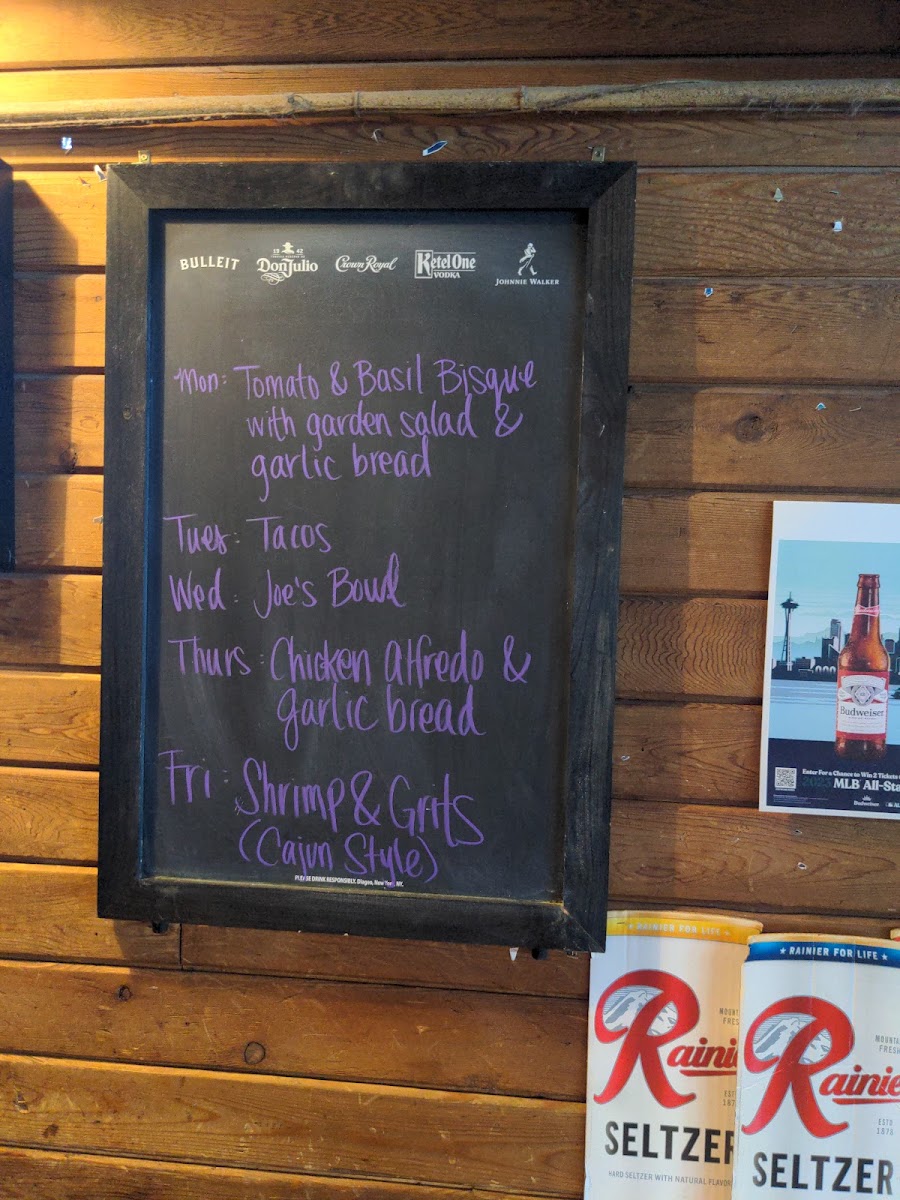 BULLEIT
1942
Don Julio
Crown Royal
Ketel One
VODKA
JOHNNIE WALKER
Mon: Tomato & Basil Bisque
with garden salad &
garlic bread
Tues: Tacos
Wed: Joe's Bowl
Thurs: Chicken Alfredo &
garlic bread
Fri: Shrimp & Grits
(Cajun Style)
PLEASE DRINK RESPONSIBLY. Diageo, New York, NY.
Budweiser
Enter For a Chance to Win 2 Tickets
MLB All-Sta
Budweiser
RAINIER FOR LIFE
MOUNT
FRES
Raini
ESTD
187
SELTZER
HARD SELTZER WITH NATURAL FLAVOR
RAINIER FOR LIFE
MOUNTA
FRESH
Rainie
ESTD
1878
SELTZER